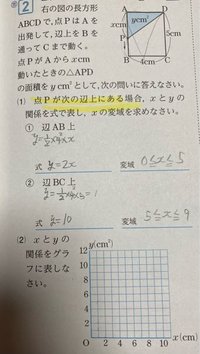 2 右の図の長方形
ABCDで,点PはAを
出発して,辺上をBを
通ってCまで動く。
点PがAからxcm
動いたときの△APD
の面積をycm²として,次の問いに答えなさい。
A D
ycm²
xcm
P
5cm
B 4cm C
(1) 点Pが次の辺上にある場合,xとyの
関係を式で表し,xの変域を求めなさい。
① 辺AB上
式 y=2x 変域 0≦x≦5
② 辺BC上
式 y=10 変域 5≦x≦9
(2) xとyの
関係をグラ
フに表しな
さい。
y(cm²)
12
10
8
6
4
2
O 2 4 6 8 10 x(cm)